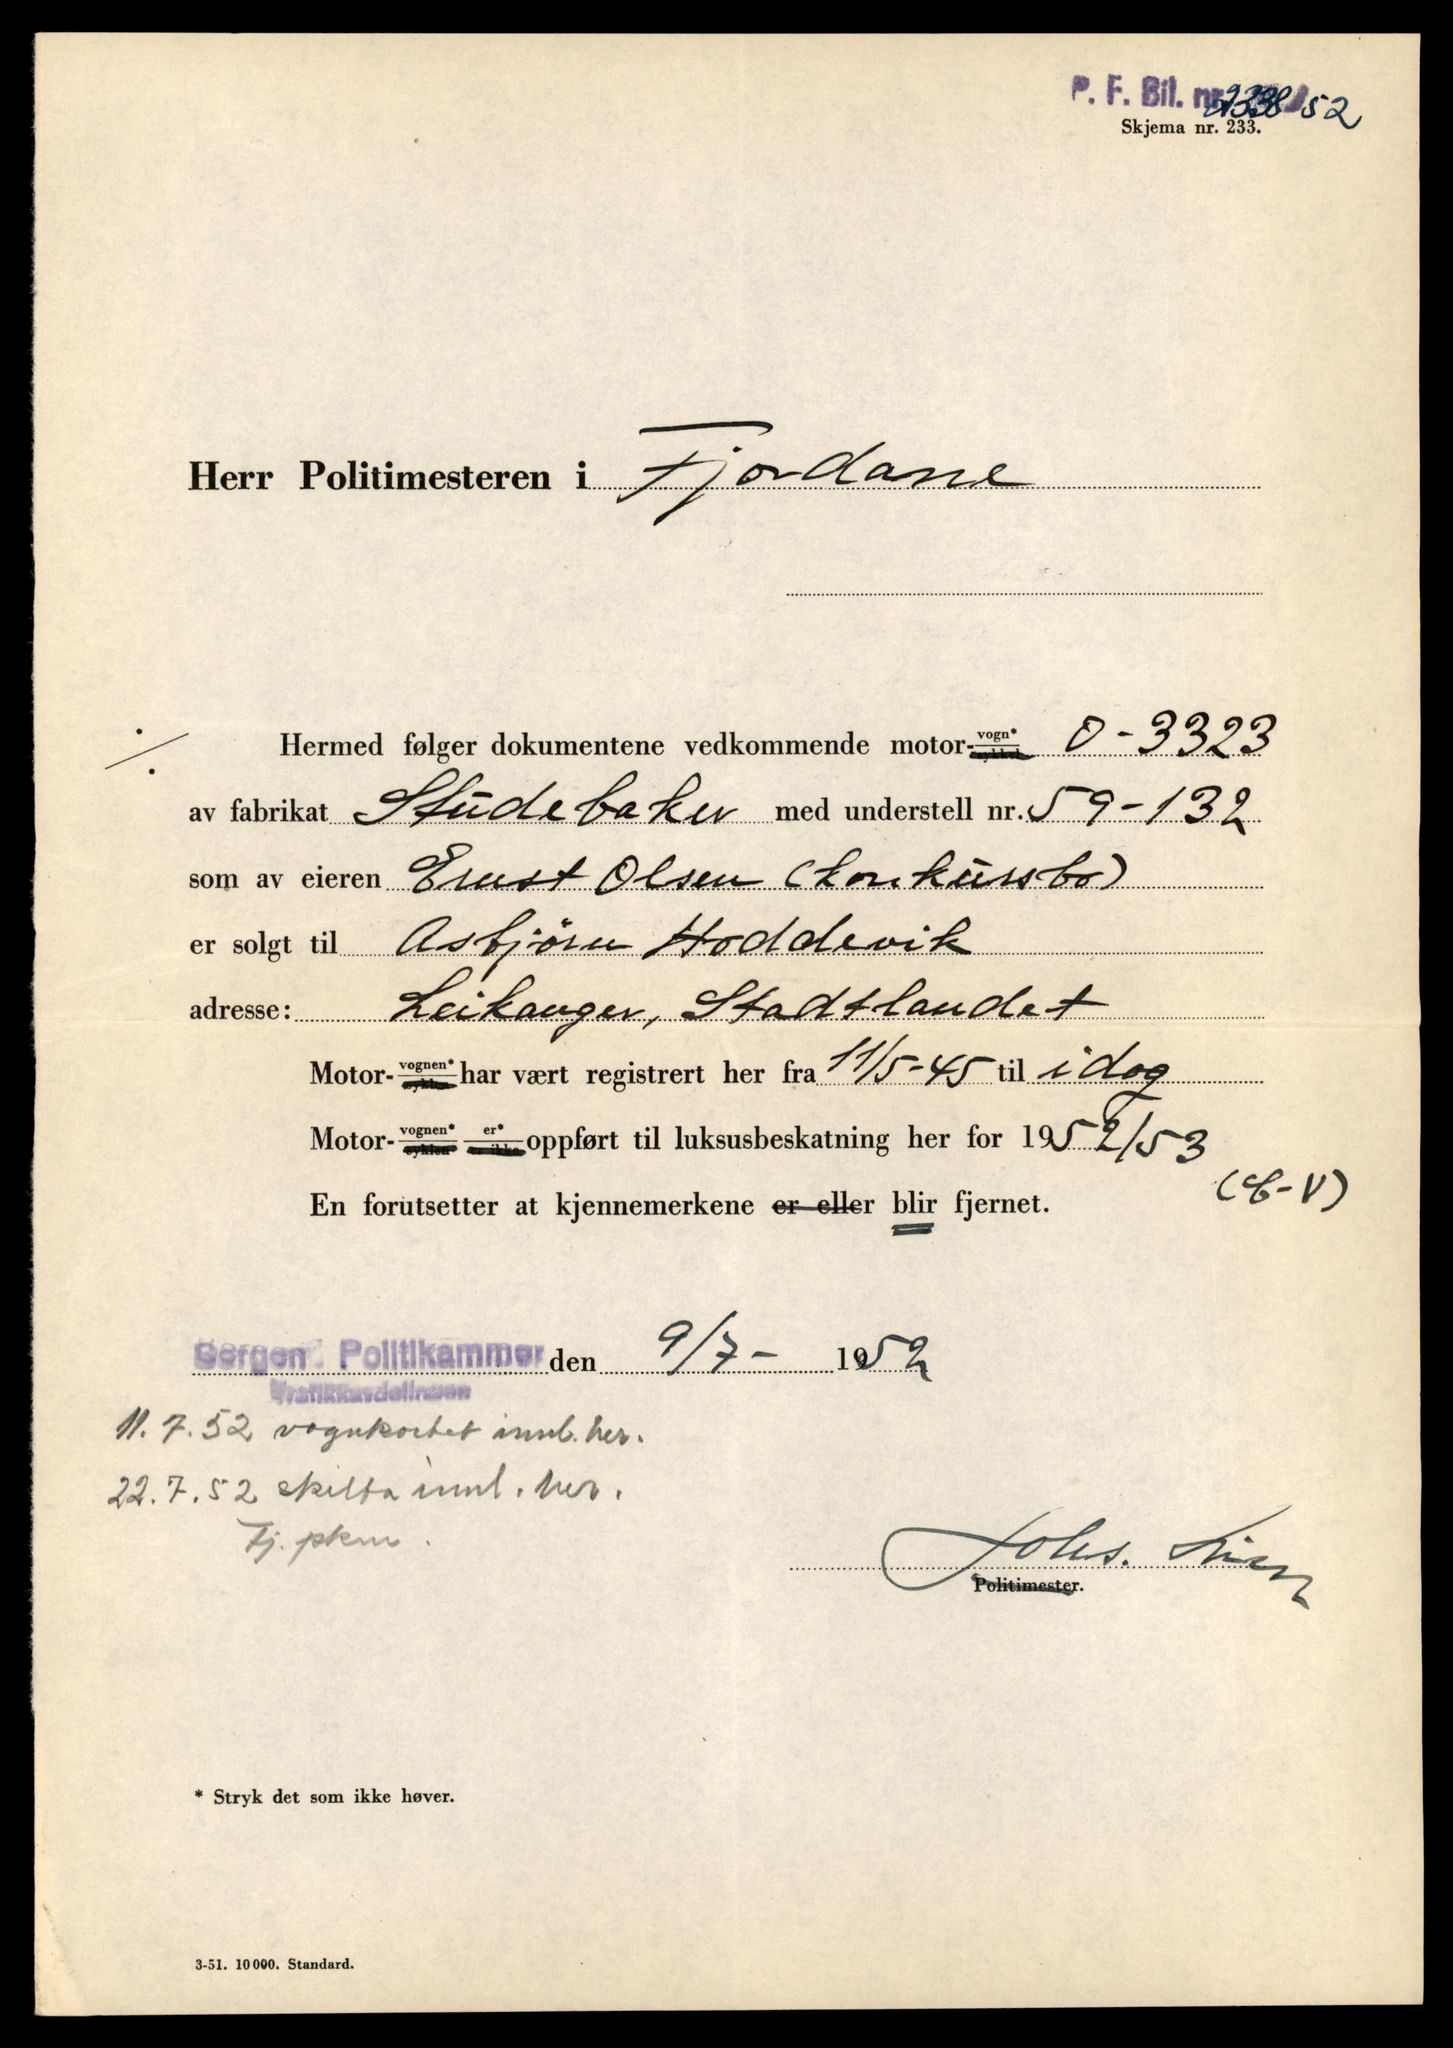 P. F. Bil. nr. 2338/52
Skjema nr. 233.
Herr Politimesteren i Fjordane
Hermed følger dokumentene vedkommende motor-vogn*/sykkel O-3323
av fabrikat Studebaker med understell nr. 59-132
som av eieren Ernst Olsen (konkursbo)
er solgt til Asbjørn Hoddevik
adresse: Leikanger, Stadtlandet
Motor-vognen*/syklen har vært registrert her fra 11/5-45 til idag
Motor-vognen*/syklen er*/er ikke oppført til luksusbeskatning her for 1952/53
En forutsetter at kjennemerkene er eller blir fjernet.
Bergen Politikammer den 9/7- 1952
Trafikkavdelingen
11.7.52 vognkortet innl. her.
22.7.52 skilta innl. her.
Fj. pkm.
Johs.
Politimester.
* Stryk det som ikke høver.
3-51. 10000. Standard.